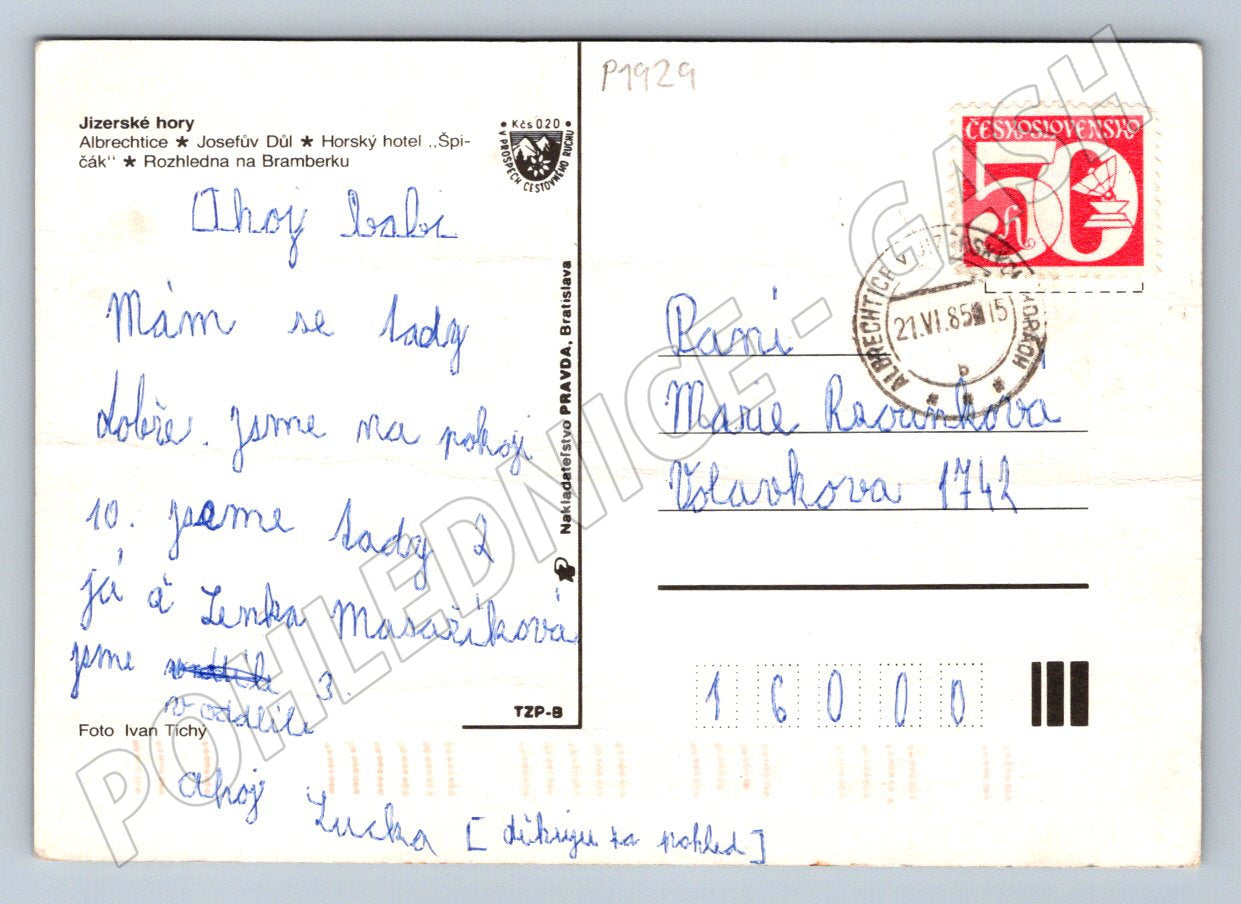 P1929
Jizerské hory
Albrechtice ★ Josefův Důl ★ Horský hotel „Špi-
čák" ★ Rozhledna na Bramberku
• Kčs 0.20 •
V PROSPECH CESTOVNÉHO RUCHU
Ahoj babi
Mám se tady
dobře. jsme na pokoji
10. jsme tady 2
já a Lenka Masaříková
jsme
v oddíle 3.
Foto Ivan Tichý
ahoj Lucka [ děkuju za pohled ]
Nakladateľstvo PRAVDA, Bratislava
TZP-B
ČESKOSLOVENSKO
50 h
ALBRECHTICE V JIZERSKÝCH HORÁCH
21.VI.85 15
b
Paní
Marie
Volavkova 1742
16000
POHLEDNICE - GASH